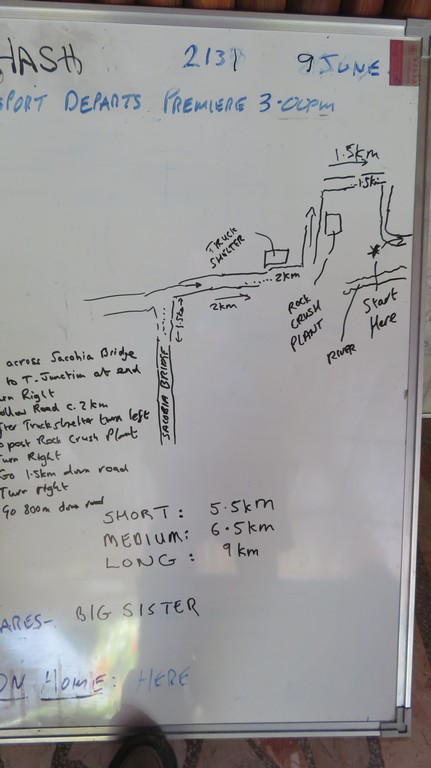 HASH 2131 9 JUNE
SPORT DEPARTS PREMIERE 3-00pm
1.5km
1.5km
TRUCK
SHELTER
2km
2km
1.5km
ROCK
CRUSH
PLANT
RIVER
Start
Here
SACOBIA BRIDGE
across Sacobia Bridge
to T. Junction at end
urn Right
ollow Road c. 2km
fter Truckshelter turn left
o past Rock Crush Plant
Turn Right
Go 1.5km down road
Turn right
Go 800m down road
SHORT: 5.5km
MEDIUM: 6.5km
LONG: 9km
ARES- BIG SISTER
ON HOME: HERE